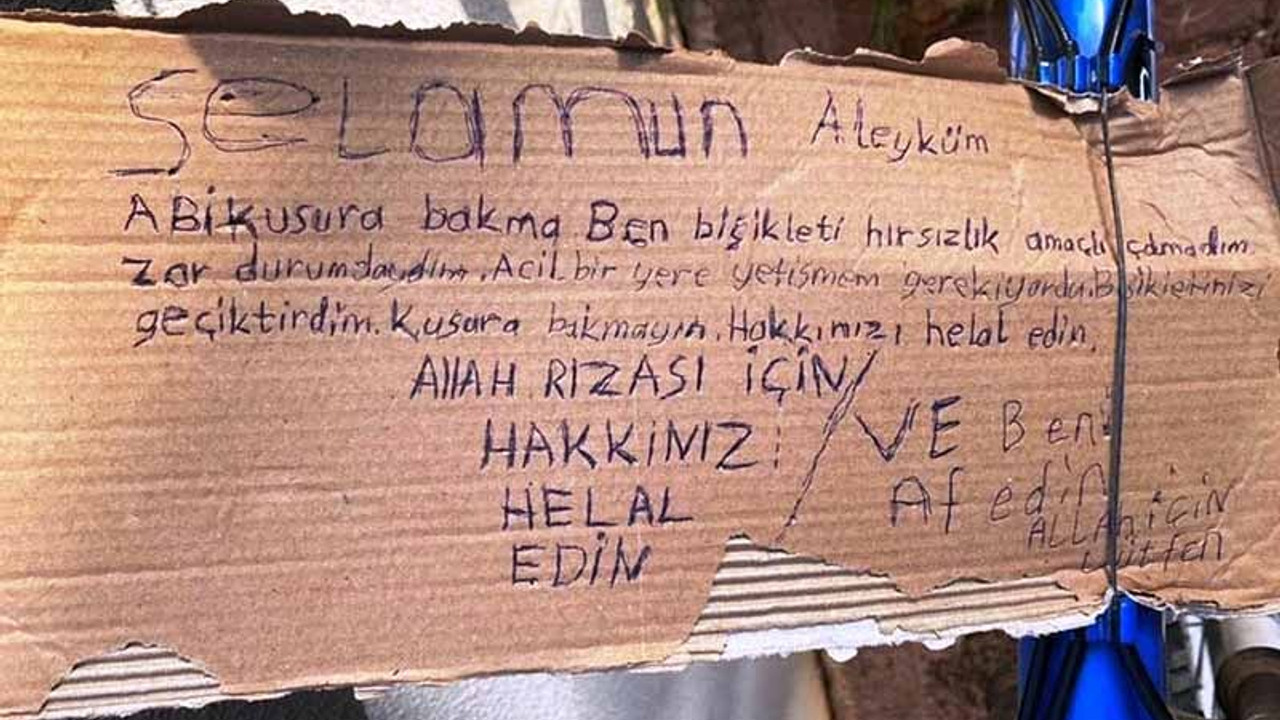 Selamun Aleyküm
ABi kusura bakma Ben bişikleti hırsızlık amaçlı çalmadım
Zor durumdaydım. Acil bir yere yetişmem gerekiyordu. Bisikletinizi
geçiktirdim. Kusura bakmayın. Hakkınızı helal edin.
AllAH RIZASI İÇİN
HAKKINIZI
HELAL
EDİN
VE Beni
Af edin
ALLAh İÇİN
Lütfen